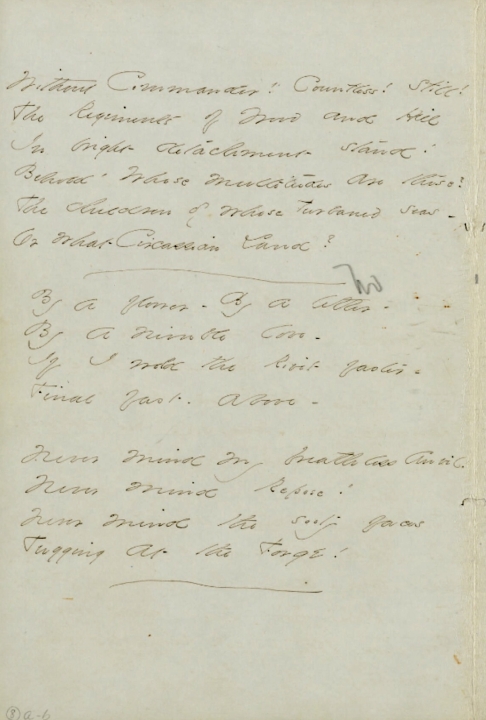 Without Commander! Countless! Still!
The Regiments of Wood and Hill
In bright detachment stand!
Behold! Whose multitudes are these?
The children of whose turbaned seas -
Or what Circassian Land?
By a flower - By a letter -
By a nimble love -
If I weld the Rivet faster -
Final fast - above -
Never mind my breathless Anvil!
Never mind Repose!
Never mind the sooty faces
Tugging at the Forge!